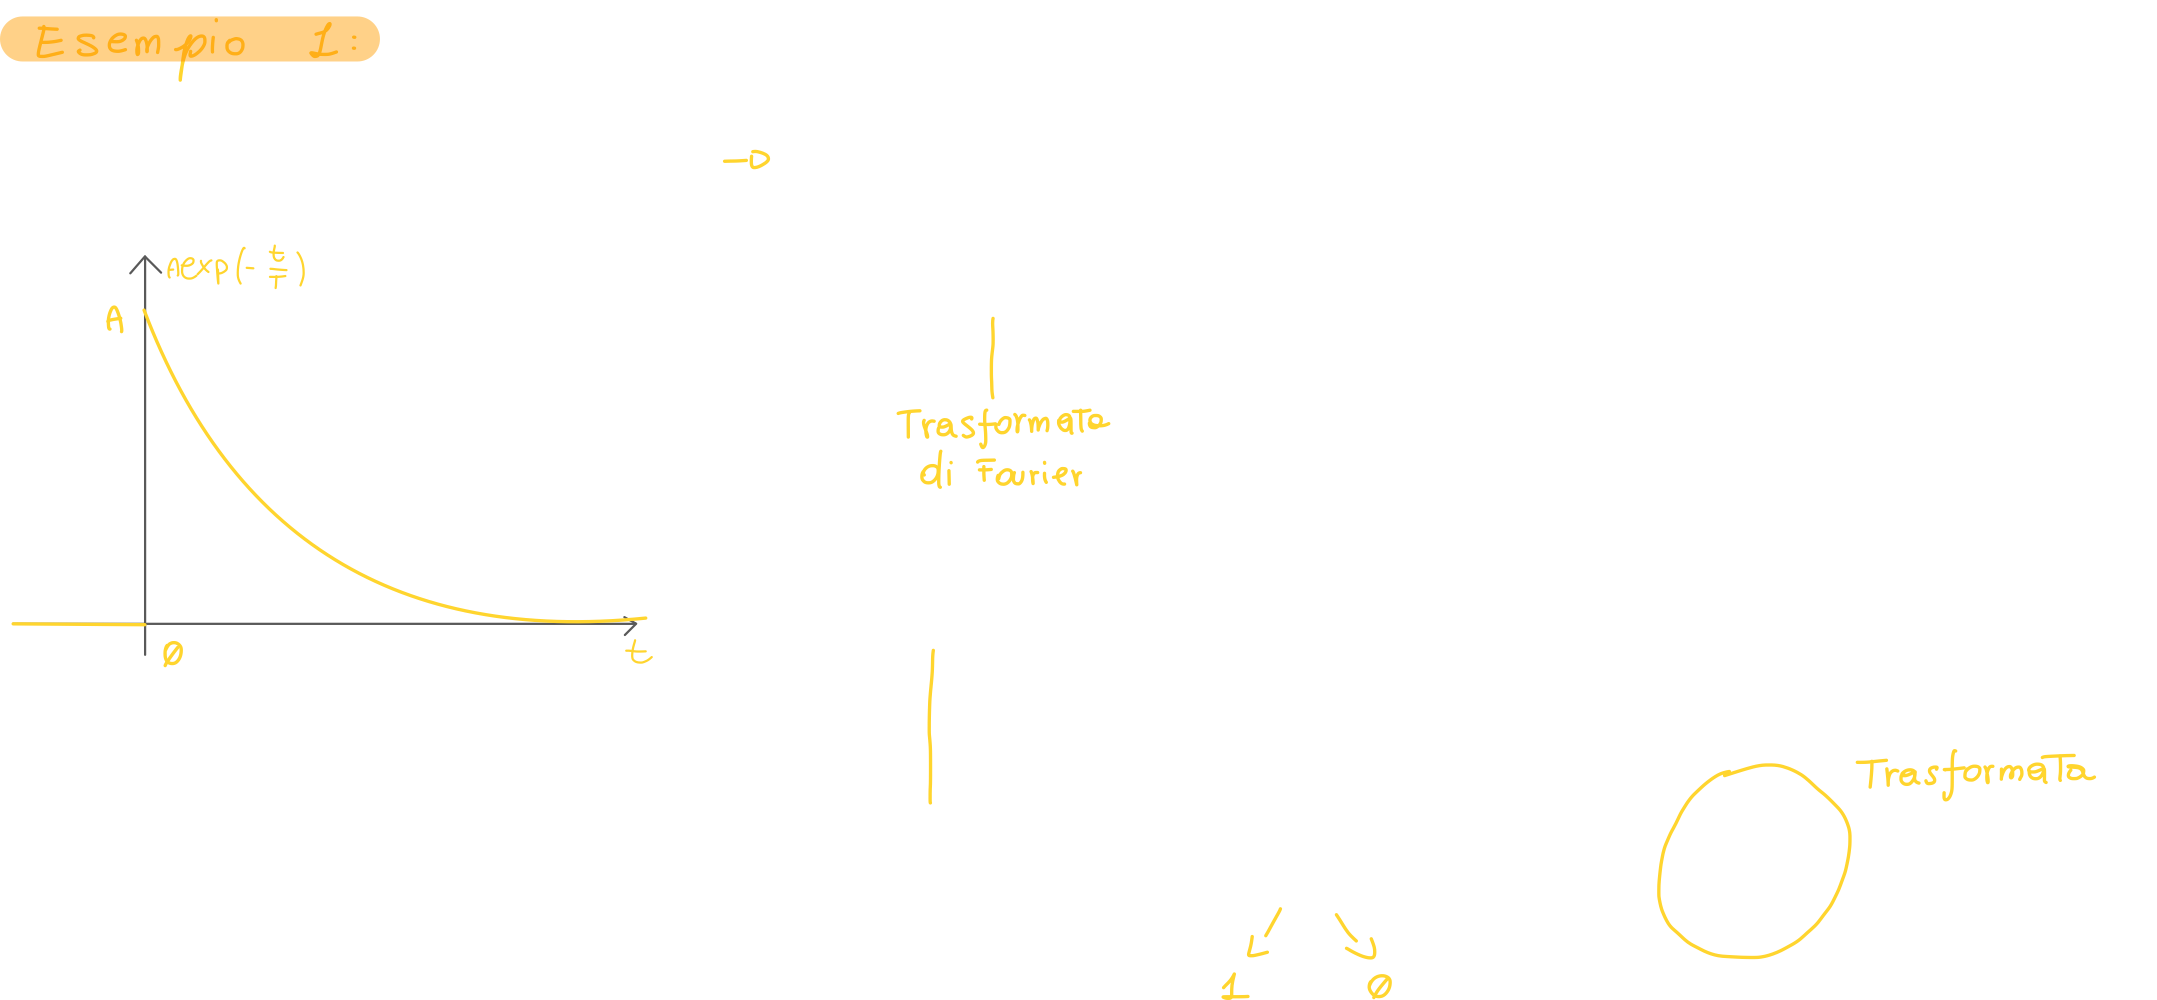 Esempio 1:
Aexp(-t/T)
A
Trasformata
di Fourier
0
t
Trasformata
1
0